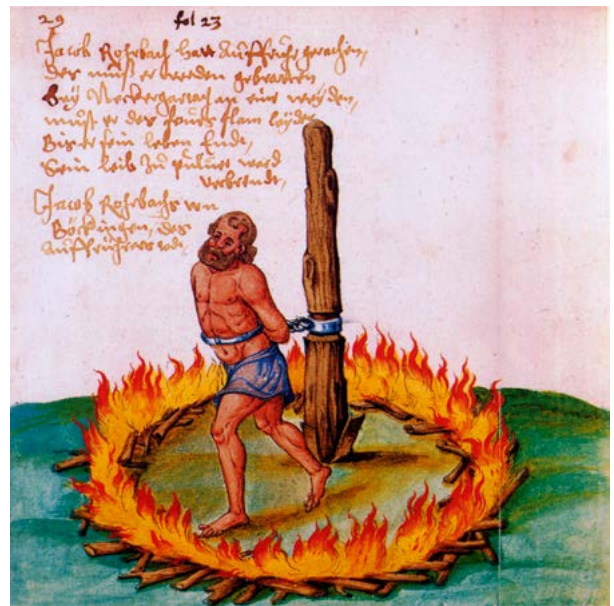 29 fol 23
Jacob Rohrbach hatt Auffruhr gerathen,
der muß er werden gebratten
Beÿ Neckergartach an ein weÿden,
muß er des feurs flam leÿden
Bis er sein leben Ende,
Sein leib zu puluer ward
verbrendt,
Jacob Rohrbachs von
Böckingen, des
Auffrührers todt.